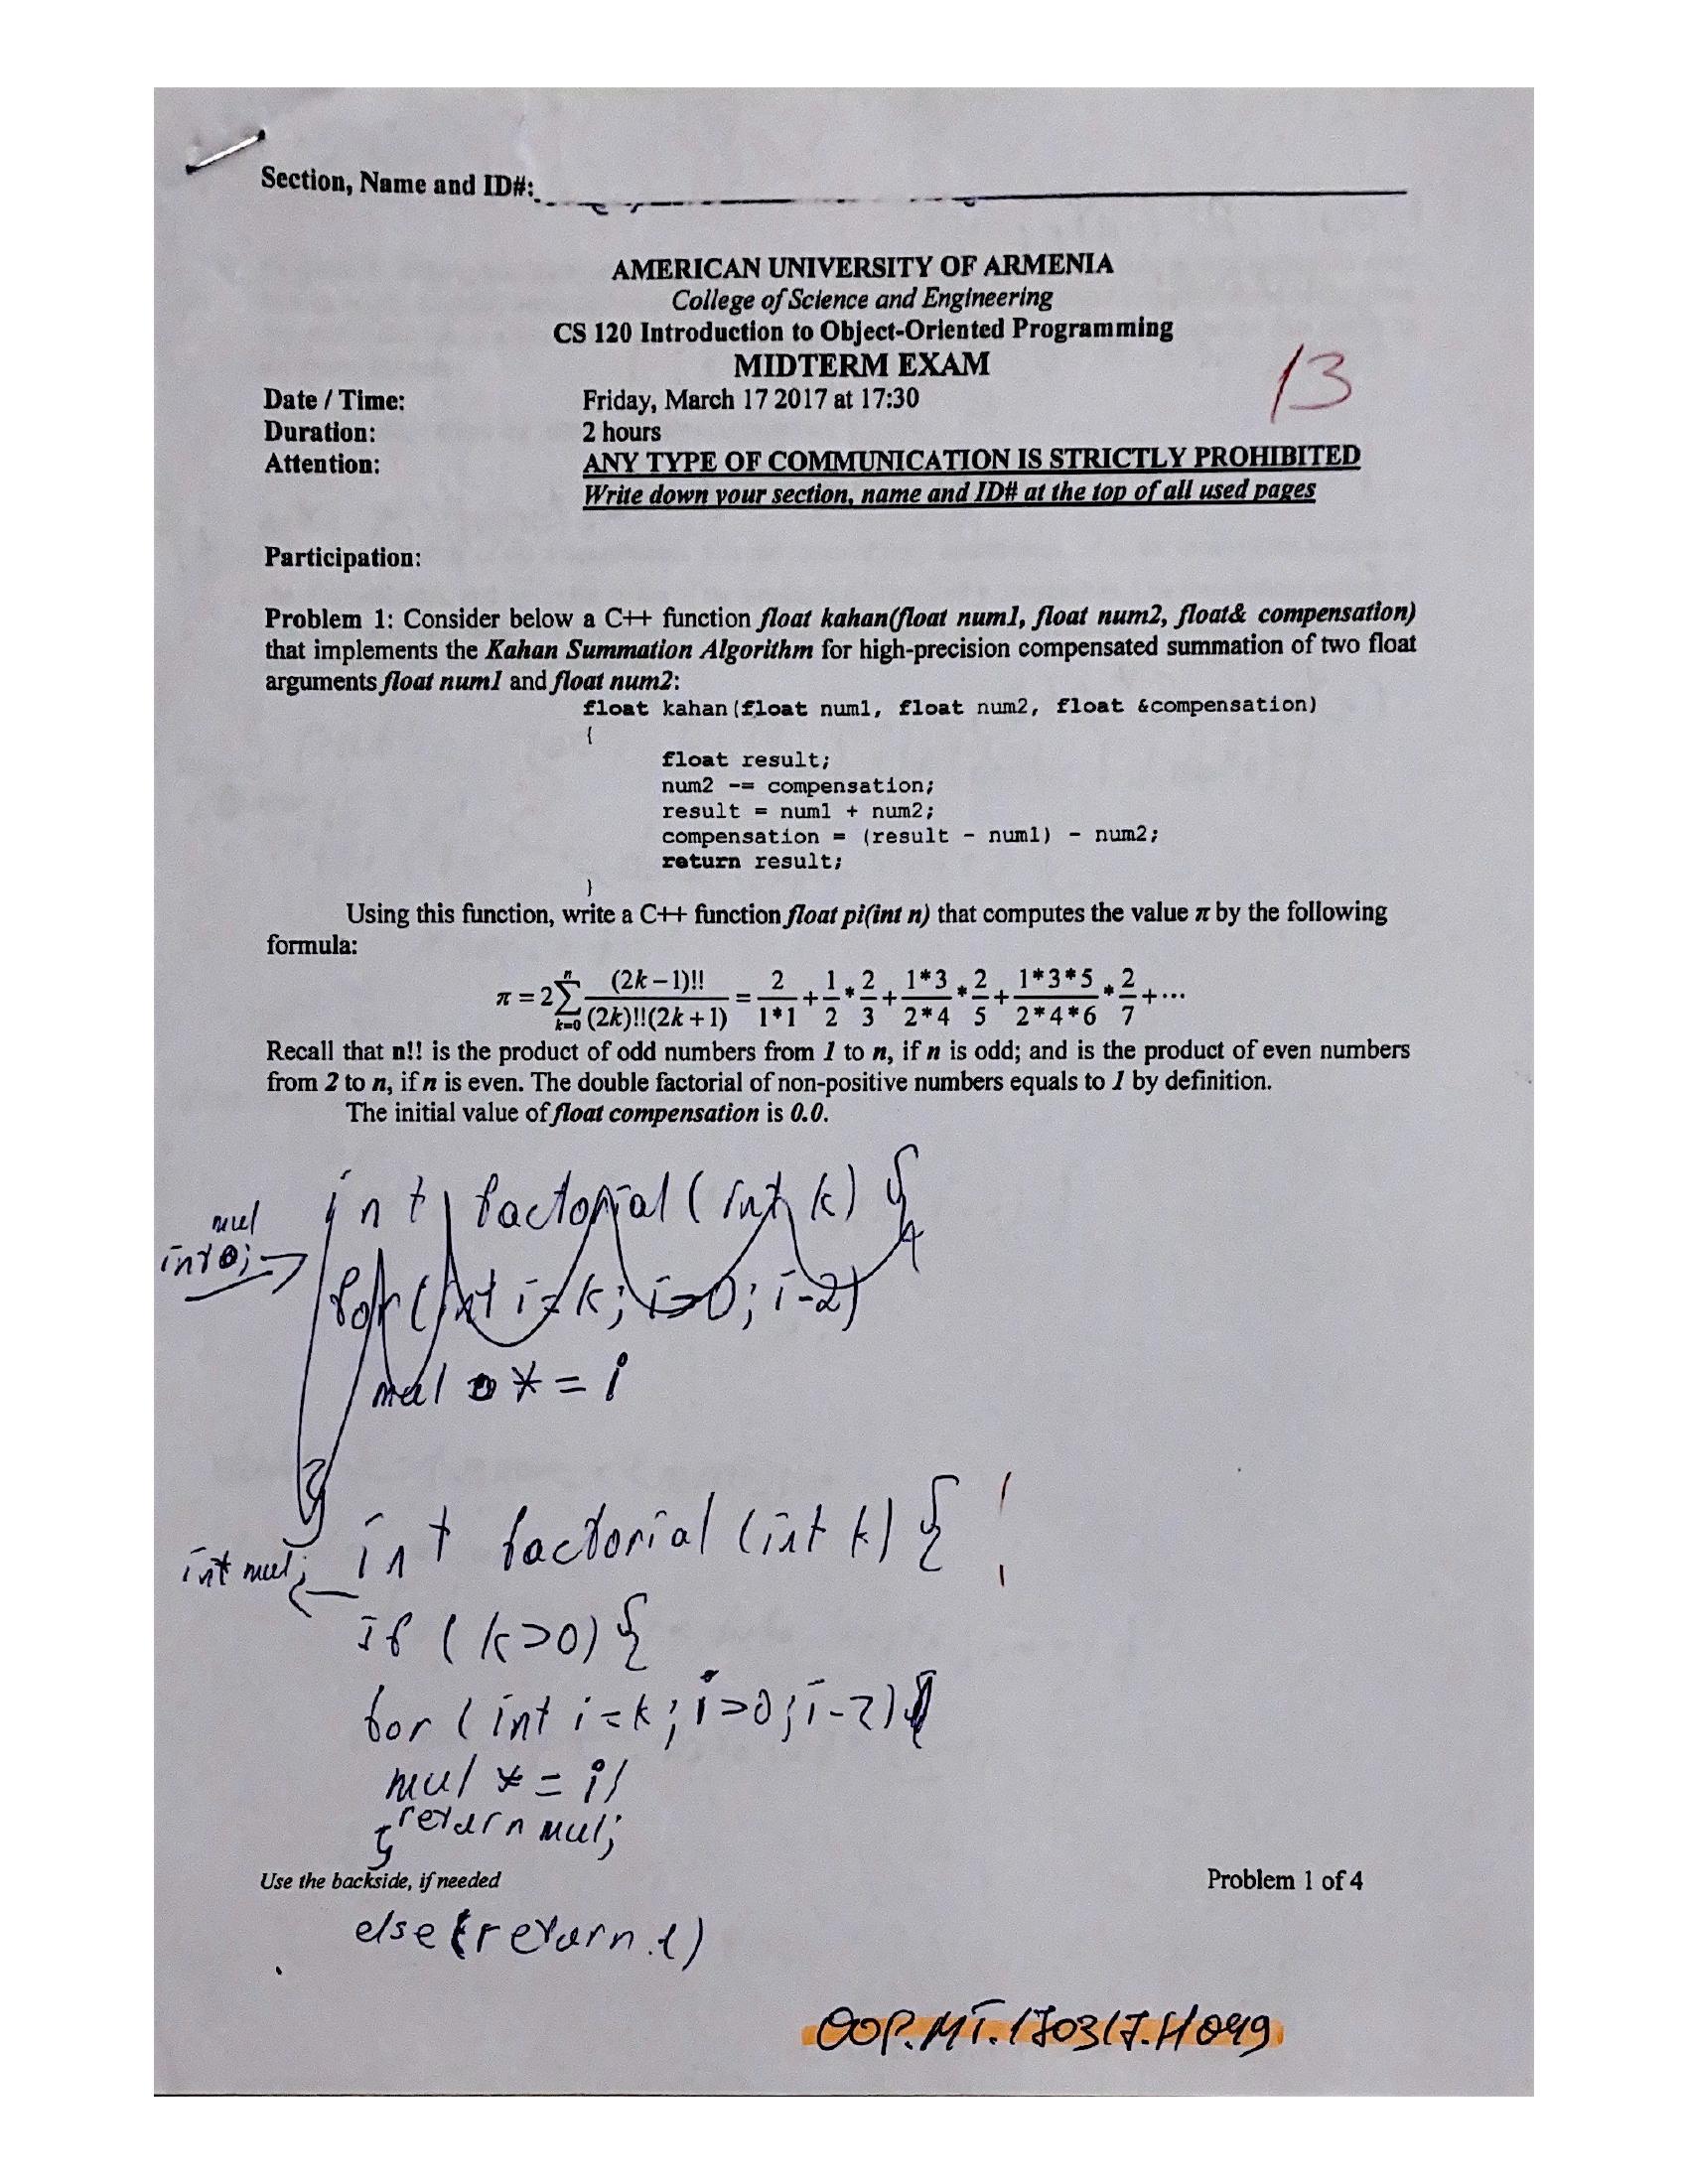 Section, Name and ID#:
AMERICAN UNIVERSITY OF ARMENIA
College of Science and Engineering
CS 120 Introduction to Object-Oriented Programming
MIDTERM EXAM
13
Date / Time: Friday, March 17 2017 at 17:30
Duration: 2 hours
Attention: ANY TYPE OF COMMUNICATION IS STRICTLY PROHIBITED
Write down your section, name and ID# at the top of all used pages
Participation:
Problem 1: Consider below a C++ function float kahan(float num1, float num2, float& compensation)
that implements the Kahan Summation Algorithm for high-precision compensated summation of two float
arguments float num1 and float num2:
float kahan(float num1, float num2, float &compensation)
{
float result;
num2 -= compensation;
result = num1 + num2;
compensation = (result - num1) - num2;
return result;
}
Using this function, write a C++ function float pi(int n) that computes the value π by the following
formula:
π = 2 ∑_{k=0}^{n} (2k – 1)!! / ((2k)!!(2k + 1)) = 2/(1*1) + 1/2 * 2/3 + (1*3)/(2*4) * 2/5 + (1*3*5)/(2*4*6) * 2/7 + ⋯
Recall that n!! is the product of odd numbers from 1 to n, if n is odd; and is the product of even numbers
from 2 to n, if n is even. The double factorial of non-positive numbers equals to 1 by definition.
The initial value of float compensation is 0.0.
int factorial (int k) {
mul
int ;
for (int i=k; i>0; i-2)
mul *= i
}
int factorial (int k) {
int mul;
if (k>0) {
for (int i=k; i>0; i-2)
mul *= i;
return mul;
}
Use the backside, if needed Problem 1 of 4
else (return 1)
OOP.MT.170317.H049